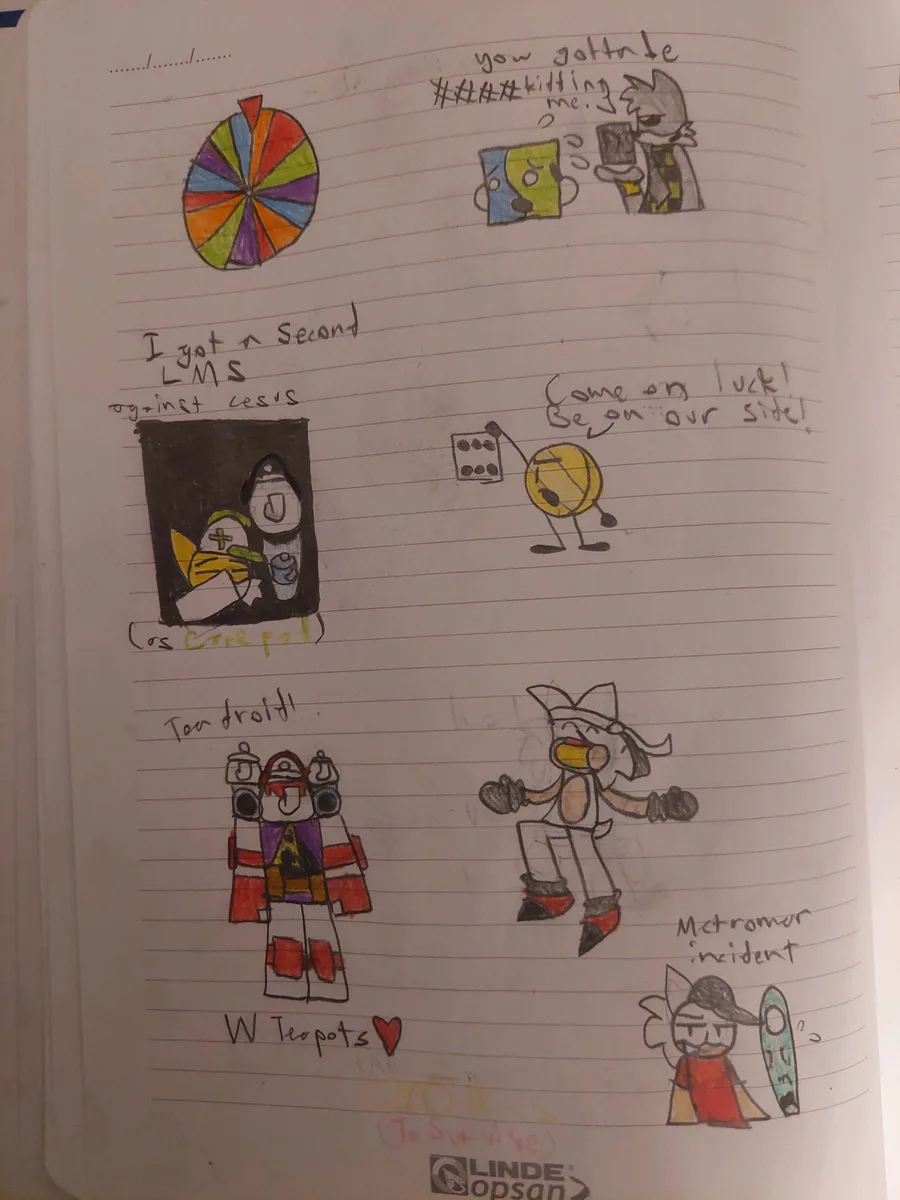 you gotta be
####kitting
me.
I got a second
LMS
against cesus
(as Care pod)
Come on luck!
Be on our site!
Teadroid!
W Teapots
Metromor
incident
(To Survive)
LINDE
opsan